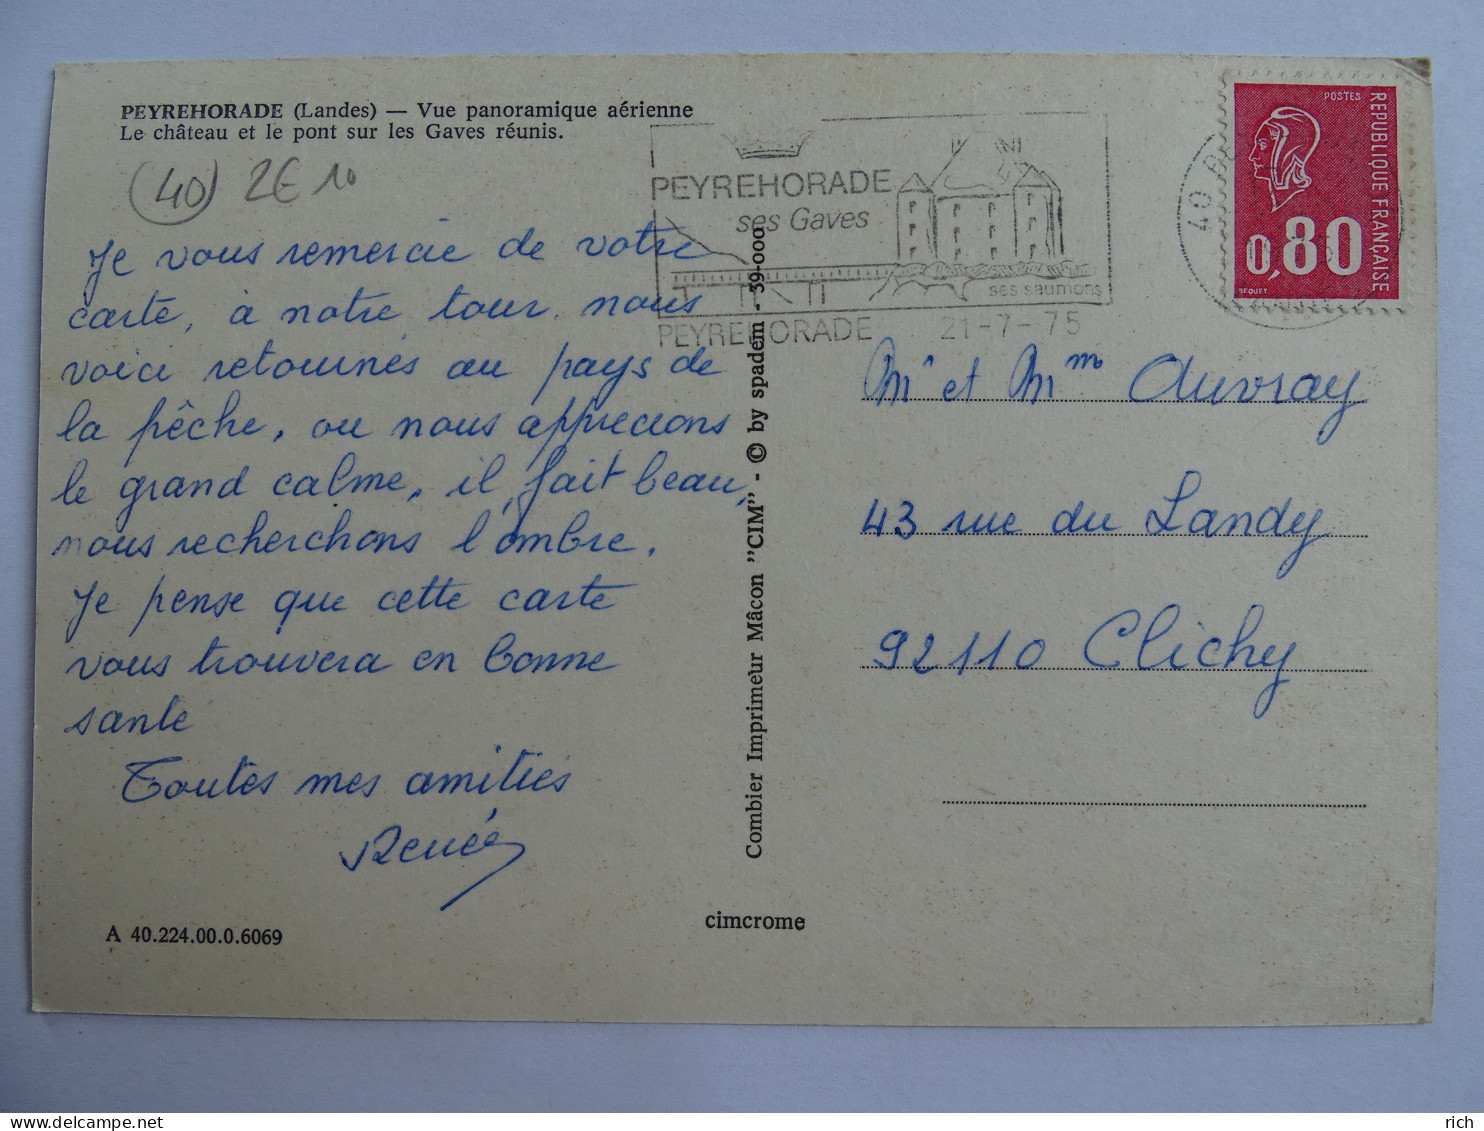 PEYREHORADE (Landes) — Vue panoramique aérienne
Le château et le pont sur les Gaves réunis.
(40) 2€10
Je vous remercie de votre
carte, à notre tour nous
voici retournés au pays de
la pêche, ou nous apprecions
le grand calme, il fait beau,
nous recherchons l'ombre.
Je pense que cette carte
vous trouvera en bonne
sante
Toutes mes amitiés
Renée
A 40.224.00.0.6069
Combier Imprimeur Mâcon "CIM" - © by spadem - 39-000
cimcrome
PEYREHORADE
ses Gaves
ses saumons
PEYREHORADE 21-7-75
40
POSTES
REPUBLIQUE FRANÇAISE
0,80
BEQUET
Mr et Mme Auvray
43 rue du Landy
92110 Clichy
delcampe.net
rich